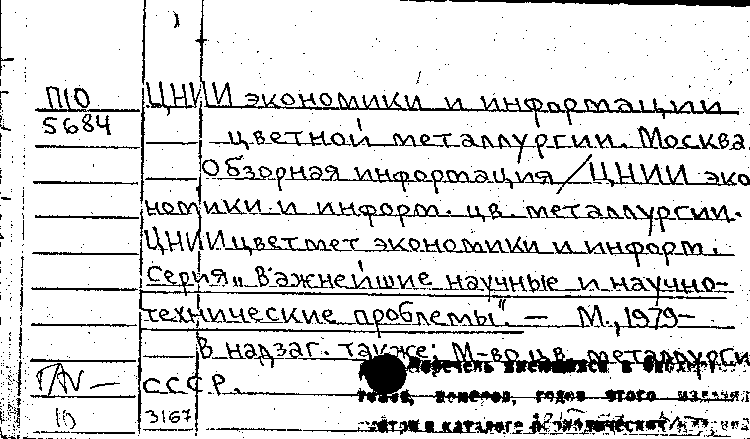 П10 ЦНИИ экономики и информации
5684 цветной металлургии. Москва.
Обзорная информация / ЦНИИ эко
номики и информ. цв. металлургии.
ЦНИИцветмет экономики и информ.
Серия „Важнейшие научные и научно-
технические проблемы". — М., 1979-
В надзаг. также: М-во цв. металлурги
СССР.
годов, номеров, годов этого издания
10 3167 каталоге периодических